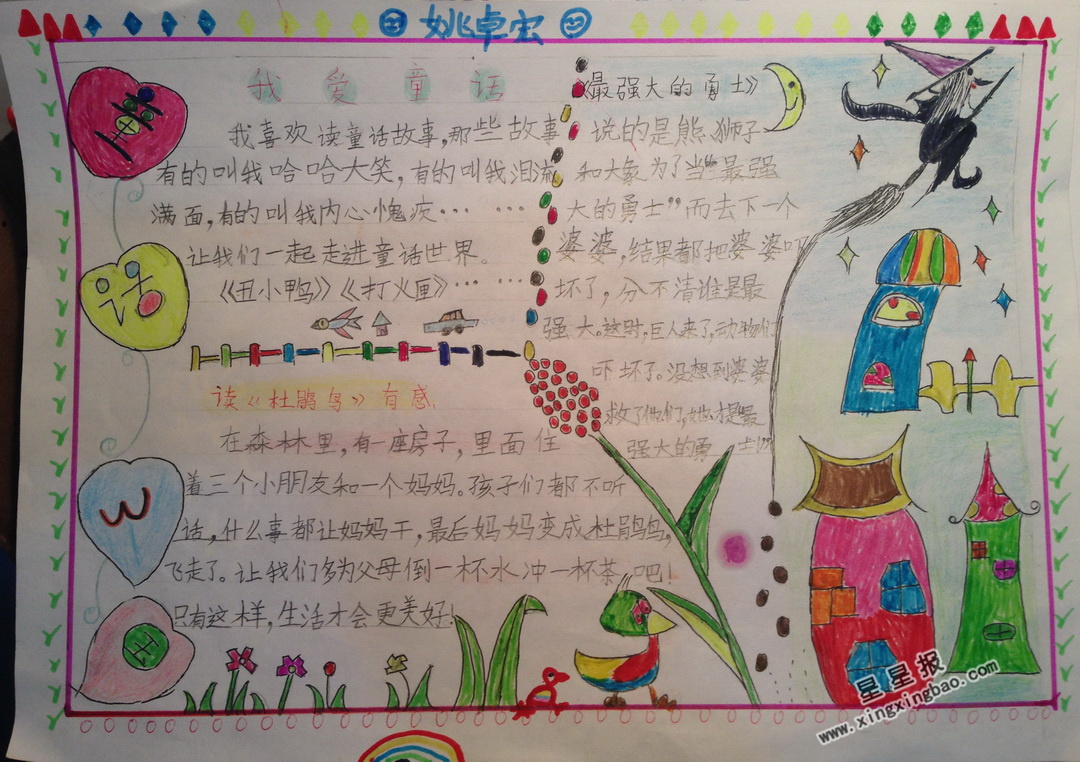 姚卓宏
童
话
世
界
我爱童话
我喜欢读童话故事,那些故事
有的叫我哈哈大笑,有的叫我泪流
满面,有的叫我内心愧疚……
让我们一起走进童话世界。
《丑小鸭》《打火匣》……
读《杜鹃鸟》有感.
在森林里,有一座房子,里面住
着三个小朋友和一个妈妈。孩子们都不听
话,什么事都让妈妈干,最后妈妈变成杜鹃鸟,
飞走了。让我们多为父母倒一杯水冲一杯茶吧!
只有这样,生活才会更美好!
《最强大的勇士》
说的是熊、狮子
和大象为了当“最强
大的勇士”而去下一个
婆婆,结果都把婆婆吓
坏了,分不清谁是最
强大。这时,巨人来了,动物们
吓坏了。没想到婆婆
救了他们,她才是最
强大的勇士”
星星报
www.xingxingbao.com